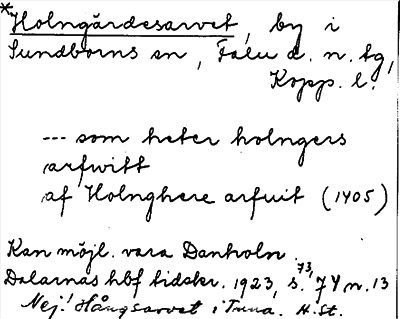 *Holngårdesarvet, by i
Sundborns sn, Falu d. n. tg,
Kopp. l.
--- som heter holngers
arfwitt
af Holnghere arfuit (1405)
Kan möjl. vara Danholn.
Dalarnas hbf tidskr. 1923, s. 73, 74 n. 13
Nej! Hångsarvet i Tuna. H. St.